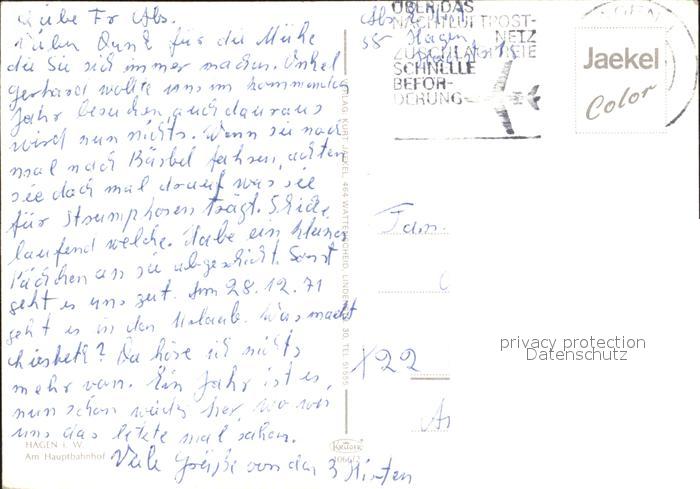 Liebe Fr Abs.
Lieben Dank für die Mühe
die Sie sich immer machen. Onkel
Gerhard wollte uns im kommenden
Jahr besuchen, auch daraus
wird nun nichts. Wenn sie noch
mal nach Bärbel fahren, achten
sie doch mal drauf was sie
für Strumphosen trägt. Schicke
laufend welche. Habe ein kleines
Päckchen an sie abgeschickt. Sonst
geht es uns gut. Am 28.12.71
geht es in den Urlaub. Was macht
Liesbeth? Da höre ich nichts
mehr von. Ein Jahr ist es
nun schon wieder her, wo wir
uns das letzte mal sahen.
Viele Grüße von den 3
HAGEN i. W.
Am Hauptbahnhof
VERLAG KURT JAEKEL, 464 WATTENSCHEID, LINDEN 30, TEL 81555
Krüger
Abs.
58 Hagen
ÜBER DAS
NACHTLUFTPOST-
NETZ
ZUSCHLAGFREIE
SCHNELLE
BEFÖR-
DERUNG
Jaekel
Color
Fam.
X22
privacy protection
Datenschutz